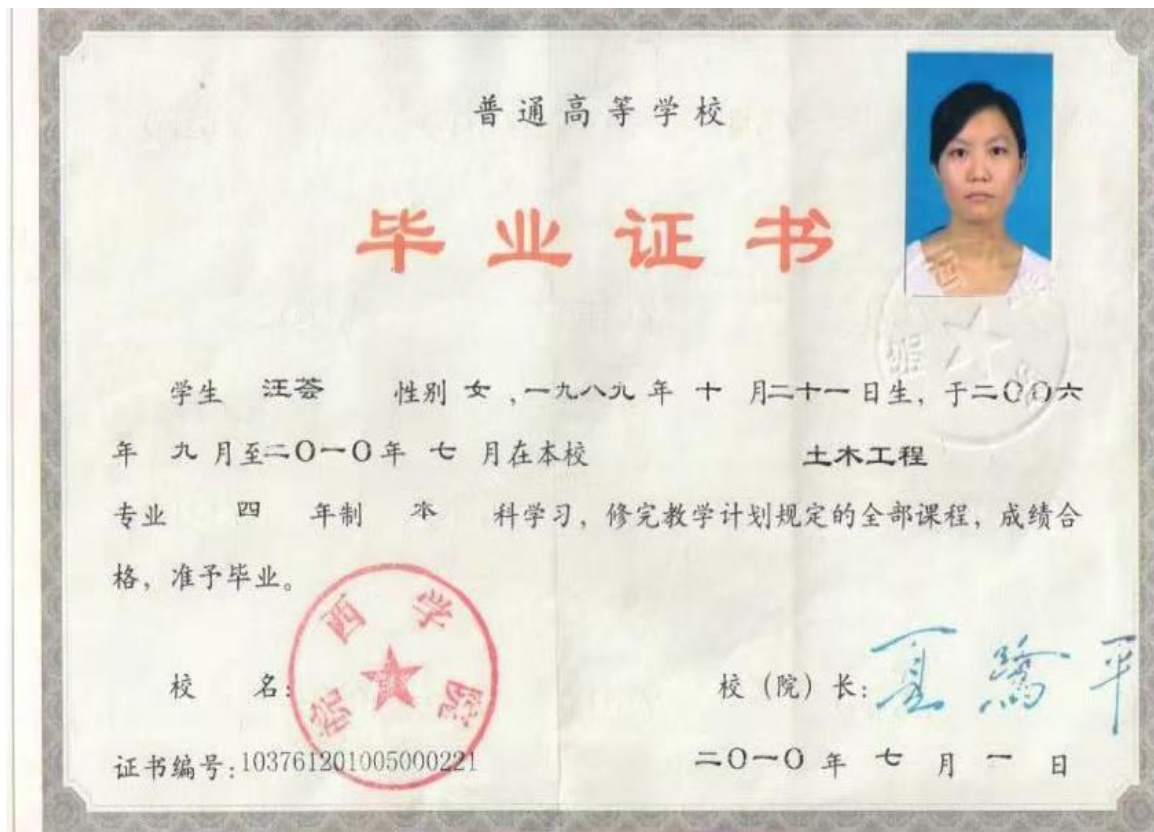 普通高等学校
毕业证书
学生 汪荟 性别 女 ,一九八九 年 十 月二十一日生, 于二〇〇六
年 九 月至二〇一〇年 七 月在本校 土木工程
专业 四 年制 本 科学习, 修完教学计划规定的全部课程, 成绩合
格, 准予毕业。
皖西学院
校 名: 校 (院) 长:
证书编号:103761201005000221 二〇一〇 年 七 月 一 日